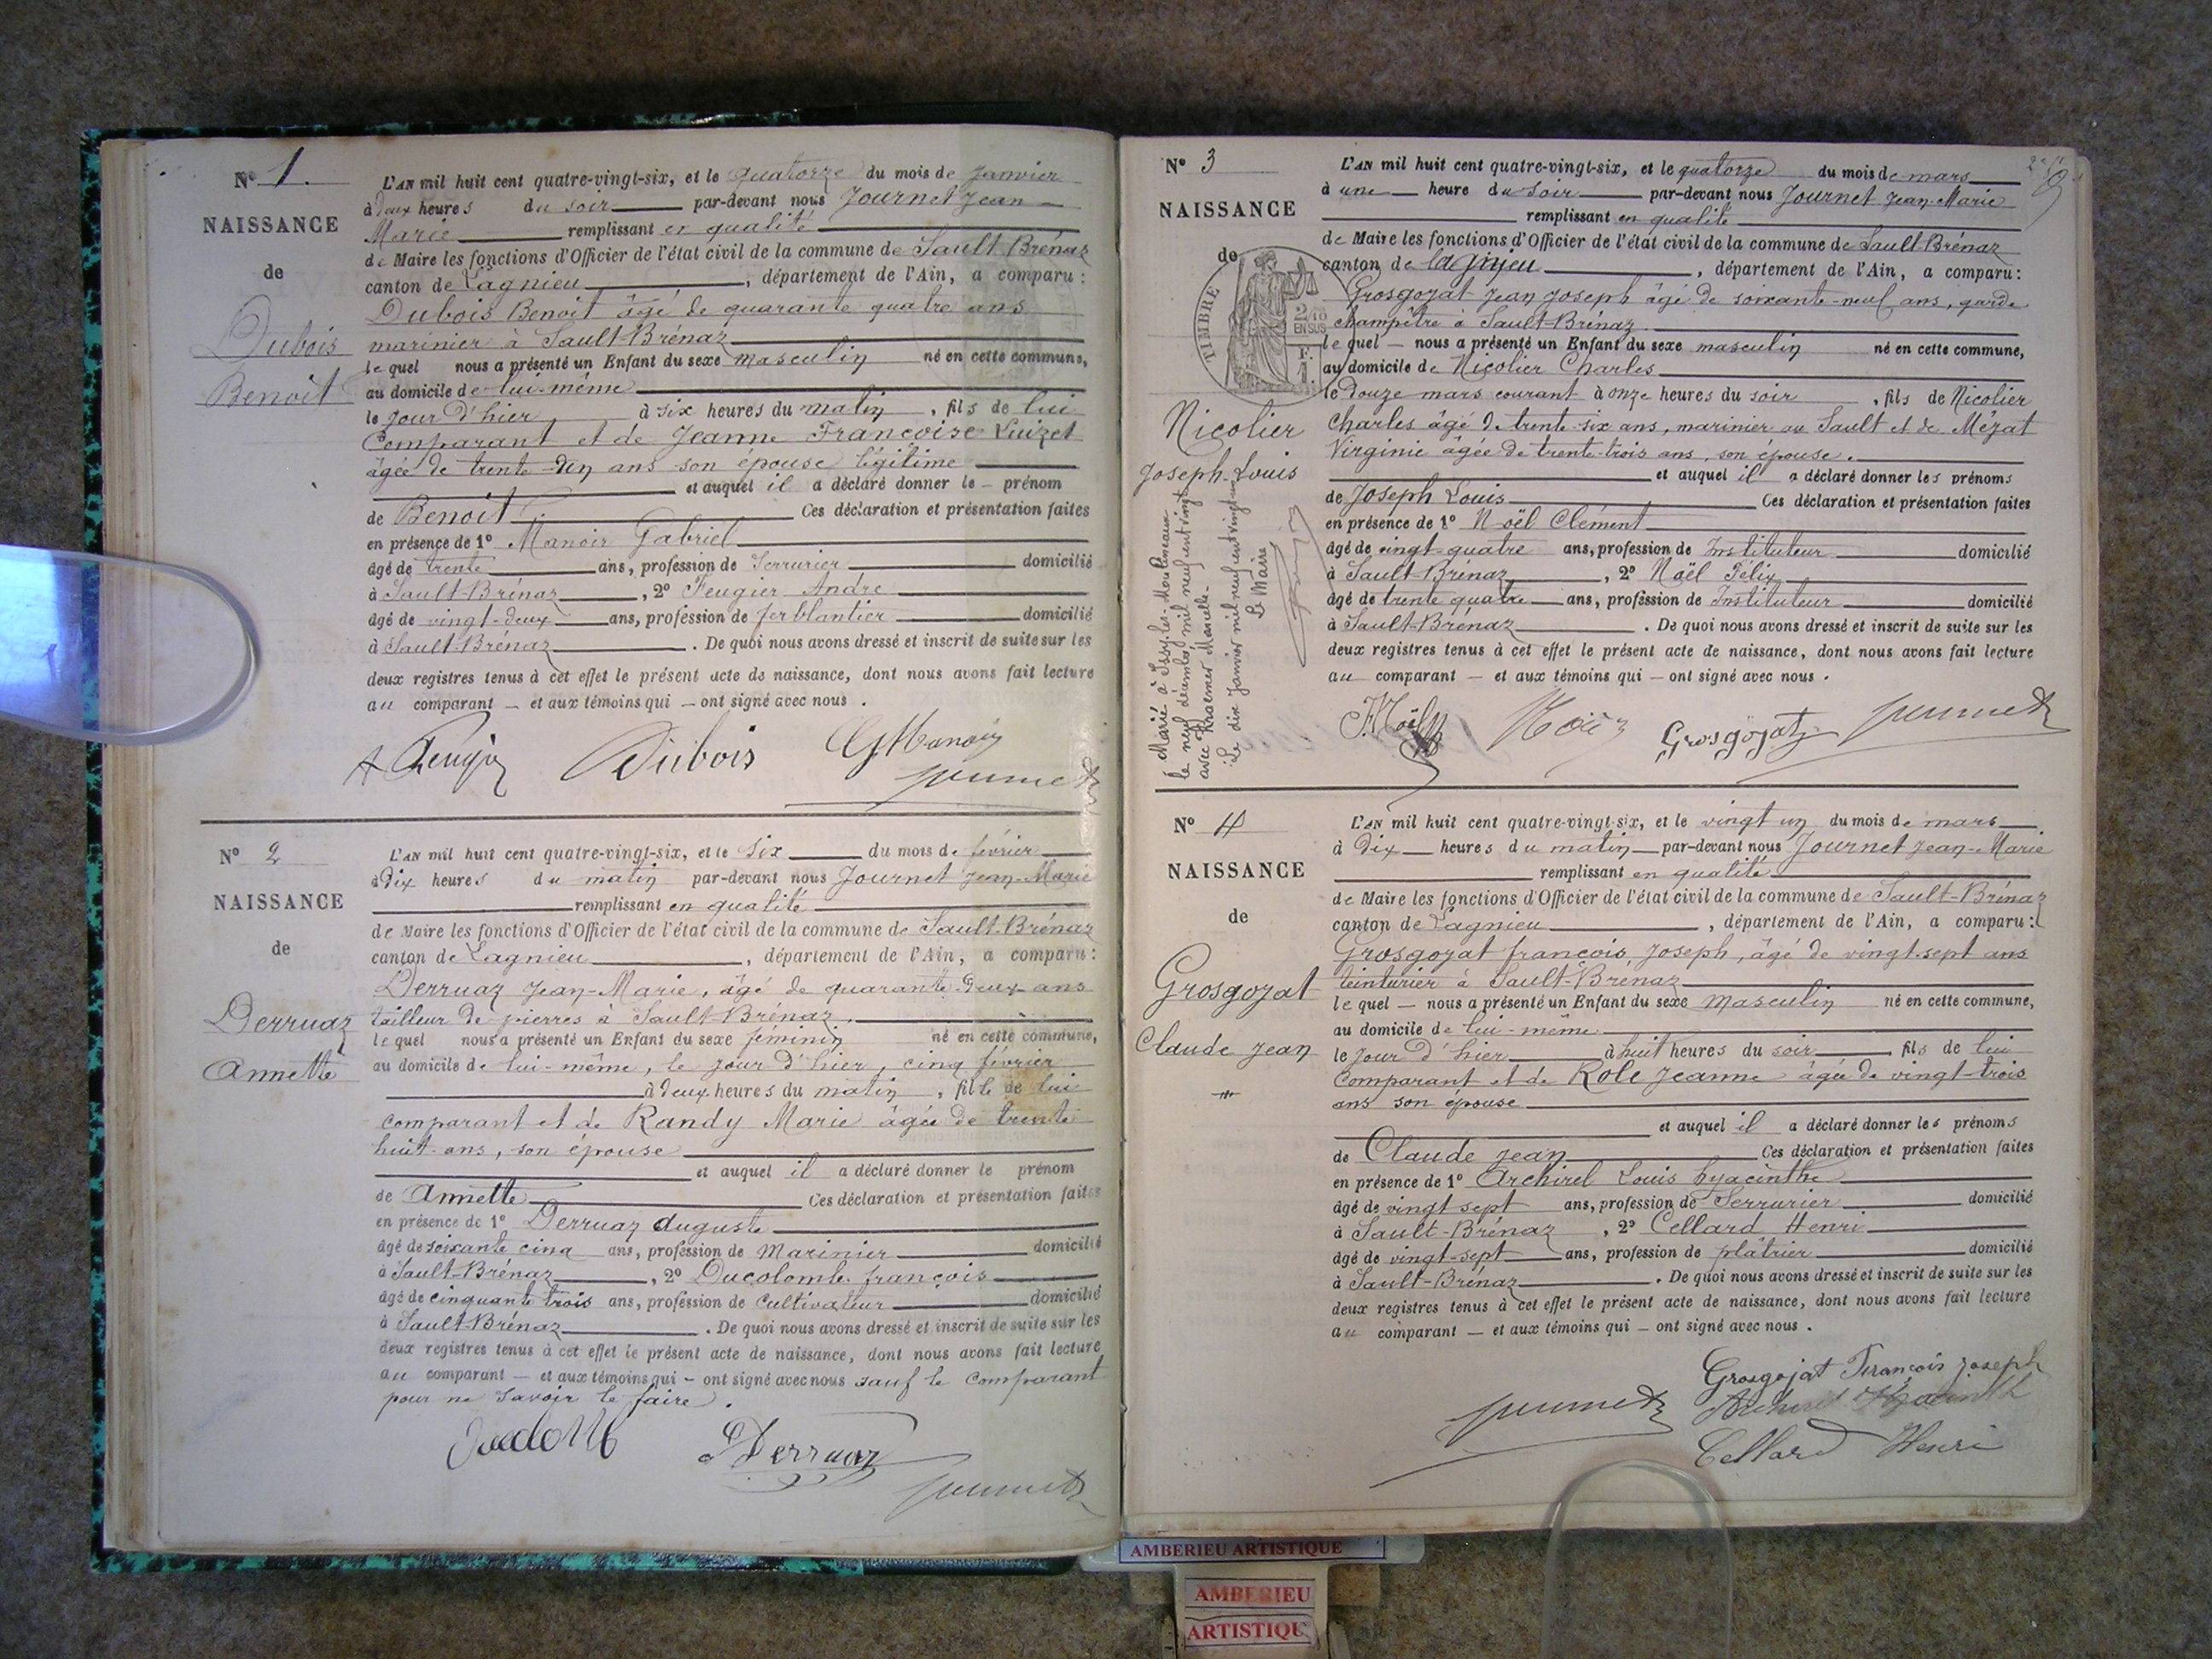 N° 1.
NAISSANCE
de
Dubois
Benoit
L'AN mil huit cent quatre-vingt-six, et le quatorze du mois de Janvier
à deux heures du soir par-devant nous Journet Jean-
Marie remplissant en qualité
de Maire les fonctions d'Officier de l'état civil de la commune de Sault-Brénaz
canton de Lagnieu, département de l'Ain, a comparu :
Dubois Benoit âgé de quarante quatre ans
marinier à Sault-Brénaz
le quel nous a présenté un Enfant du sexe masculin né en cette commune,
au domicile de lui-même
le jour d'hier à six heures du matin, fils de lui
Comparant et de Jeanne Françoise Luizet
âgée de trente-dix ans son épouse légitime
et auquel il a déclaré donner le prénom
de Benoit Ces déclaration et présentation faites
en présence de 1° Manoir Gabriel
âgé de trente ans, profession de Serrurier domicilié
à Sault-Brénaz, 2° Feugier André
âgé de vingt-deux ans, profession de ferblantier domicilié
à Sault-Brénaz. De quoi nous avons dressé et inscrit de suite sur les
deux registres tenus à cet effet le présent acte de naissance, dont nous avons fait lecture
au comparant — et aux témoins qui — ont signé avec nous.
A Feugier Dubois G Manoir
Journet
N° 2
NAISSANCE
de
Derruaz
Annette
L'AN mil huit cent quatre-vingt-six, et le Six du mois de février
à Dix heures du matin par-devant nous Journet Jean-Marie
remplissant en qualité
de Maire les fonctions d'Officier de l'état civil de la commune de Sault-Brénaz
canton de Lagnieu, département de l'Ain, a comparu :
Derruaz Jean-Marie, âgé de quarante-deux ans
tailleur de pierres à Sault-Brénaz.
le quel nous a présenté un Enfant du sexe féminin né en cette commune,
au domicile de lui-même, le jour d'hier, cinq février
à deux heures du matin, fille de lui
comparant et de Randy Marie âgée de trente
huit ans, son épouse
et auquel il a déclaré donner le prénom
de Annette Ces déclaration et présentation faites
en présence de 1° Derruaz Auguste
âgé de soixante cinq ans, profession de Marinier domicilié
à Sault-Brénaz, 2° Ducolomb françois
âgé de cinquante trois ans, profession de Cultivateur domicilié
à Sault-Brénaz. De quoi nous avons dressé et inscrit de suite sur les
deux registres tenus à cet effet le présent acte de naissance, dont nous avons fait lecture
au comparant — et aux témoins qui — ont signé avec nous sauf le comparant
pour ne savoir le faire.
Derruaz
Journet
N° 3
NAISSANCE
de
TIMBRE
2/10
EN SUS
F.
1.
Nicolier
Joseph-Louis
Marié à Issy-les-Moulineaux
le neuf décembre mil neuf cent vingt
avec Kraemer Marcelle-
Le dix janvier mil neuf cent vingt un
Le Maire
L'AN mil huit cent quatre-vingt-six, et le quatorze du mois de mars
à une heure du soir par-devant nous Journet Jean-Marie
remplissant en qualité
de Maire les fonctions d'Officier de l'état civil de la commune de Sault-Brénaz
canton de Lagnieu, département de l'Ain, a comparu :
Grosgojat Jean Joseph âgé de soixante-neuf ans, garde
champêtre à Sault-Brénaz.
le quel — nous a présenté un Enfant du sexe masculin né en cette commune,
au domicile de Nicolier Charles
le douze mars courant à onze heures du soir, fils de Nicolier
Charles âgé de trente-six ans, marinier au Sault et de Mézat
Virginie âgée de trente-trois ans, son épouse.
et auquel il a déclaré donner les prénoms
de Joseph Louis Ces déclaration et présentation faites
en présence de 1° Noël Clément
âgé de vingt-quatre ans, profession de Instituteur domicilié
à Sault-Brénaz, 2° Noël Félix
âgé de trente quatre ans, profession de Instituteur domicilié
à Sault-Brénaz. De quoi nous avons dressé et inscrit de suite sur les
deux registres tenus à cet effet le présent acte de naissance, dont nous avons fait lecture
au comparant — et aux témoins qui — ont signé avec nous.
F. Noël Noël Grosgojat Journet
N° 4
NAISSANCE
de
Grosgojat
Claude Jean
L'AN mil huit cent quatre-vingt-six, et le vingt un du mois de mars
à Dix heures du matin par-devant nous Journet Jean-Marie
remplissant en qualité
de Maire les fonctions d'Officier de l'état civil de la commune de Sault-Brénaz
canton de Lagnieu, département de l'Ain, a comparu :
Grosgojat françois, Joseph, âgé de vingt-sept ans
teinturier à Sault-Brénaz
le quel — nous a présenté un Enfant du sexe Masculin né en cette commune,
au domicile de lui-même
le jour d'hier à huit heures du soir fils de lui
comparant et de Role Jeanne âgée de vingt-trois
ans son épouse
et auquel il a déclaré donner les prénoms
de Claude Jean Ces déclaration et présentation faites
en présence de 1° Archirel Louis hyacinthe
âgé de vingt sept ans, profession de Serrurier domicilié
à Sault-Brénaz, 2° Cellard Henri
âgé de vingt-sept ans, profession de plâtrier domicilié
à Sault-Brénaz. De quoi nous avons dressé et inscrit de suite sur les
deux registres tenus à cet effet le présent acte de naissance, dont nous avons fait lecture
au comparant — et aux témoins qui — ont signé avec nous.
Grosgojat François Joseph
Journet Archirel Hyacinth
Cellard Henri
AMBERIEU ARTISTIQUE
AMBERIEU
ARTISTIQU